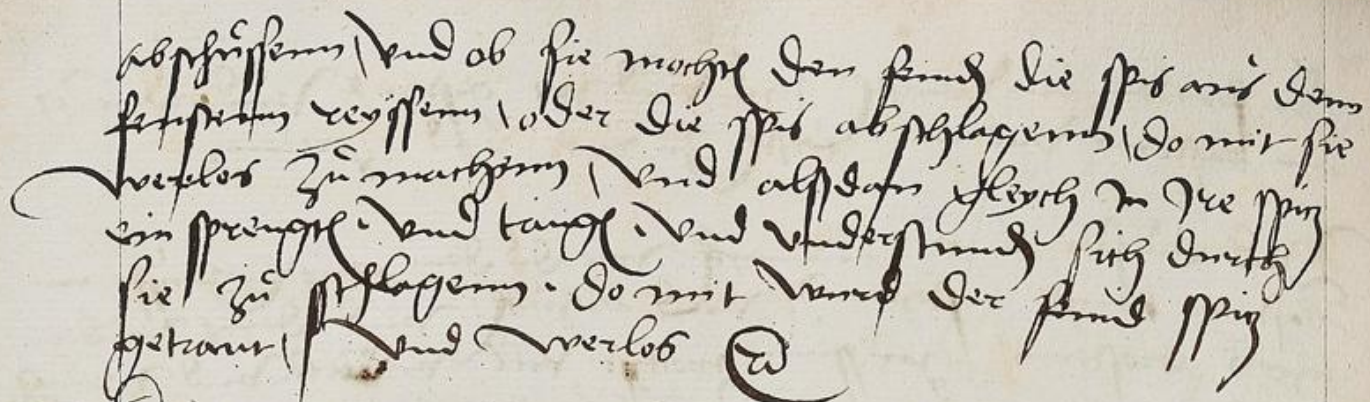 abschüssenn / vnd ob sie mochten den feinden die spis aus denn
feusten reyssenn / oder die spis abschlagenn / do mit sie
werlos zů machenn / vnd alssdan gleych in Ire spitz
ein sprengten · vnd · vnd vnderstunden sich durch
sie zů schlagenn · do mit wurd der feind spitz
getrant / vnd werlos